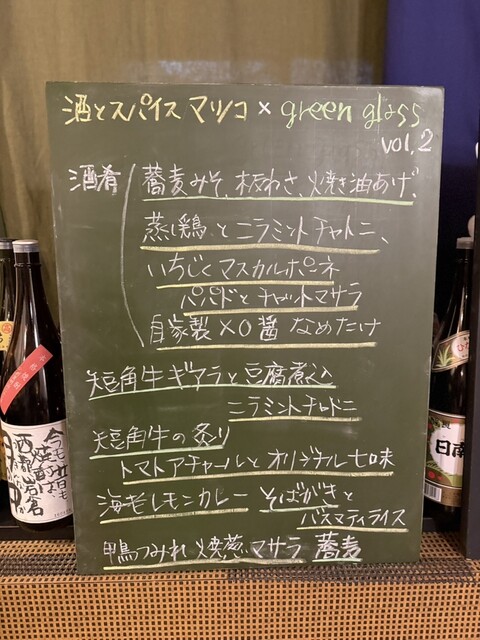 酒とスパイス マツコ × green glass
vol.2
酒肴
蕎麦みそ、板わさ、焼き油あげ、
蒸し鶏とニラミントチャトニ、
いちじくマスカルポーネ
パパドとチャットマサラ
自家製XO醤 なめたけ
短角牛ギアラと豆腐煮込
ニラミントチャトニ
短角牛の炙り
トマトアチャールとオリジナル七味
海老レモンカレー そばがきと
バスマティライス
鴨つみれ 焼葱 マサラ 蕎麦
日南